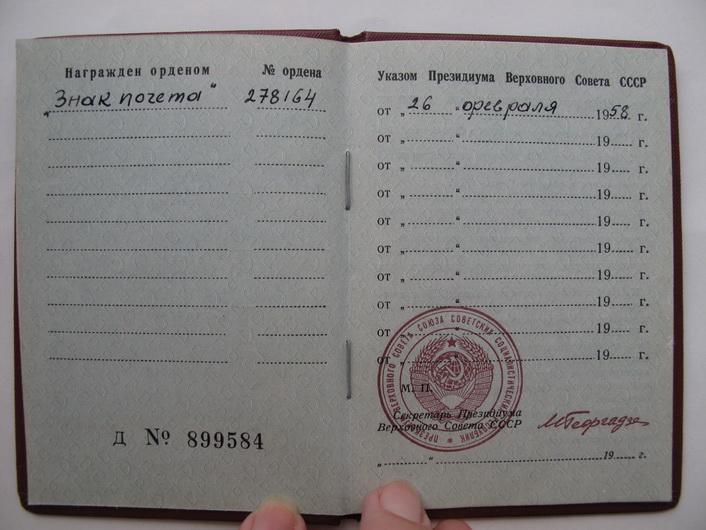 Награжден орденом № ордена
„Знак почета“ 278164
Д № 899584
Указом Президиума Верховного Совета СССР
от „ 26 “ февраля 1958 г.
от „ “ 19 г.
от „ “ 19 г.
от „ “ 19 г.
от „ “ 19 г.
от „ “ 19 г.
от „ “ 19 г.
от „ “ 19 г.
от „ “ 19 г.
от „ “ 19 г.
ПРЕЗИДИУМ ВЕРХОВНОГО СОВЕТА СОЮЗА СОВЕТСКИХ СОЦИАЛИСТИЧЕСКИХ РЕСПУБЛИК
М. П.
Секретарь Президиума
Верховного Совета СССР МГеоргадзе
„ “ 19 г.